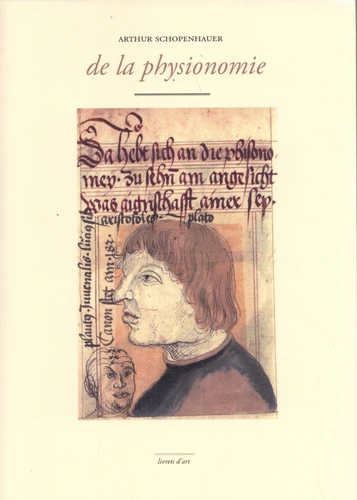 ARTHUR SCHOPENHAUER
de la physionomie
Da hebt sich an die phisono
mey. zu sehn am angesicht
was aignschafft ainer sey.
aristotoles. plato
plauty. Juuenalis. lucius
Canon
livrets d'art